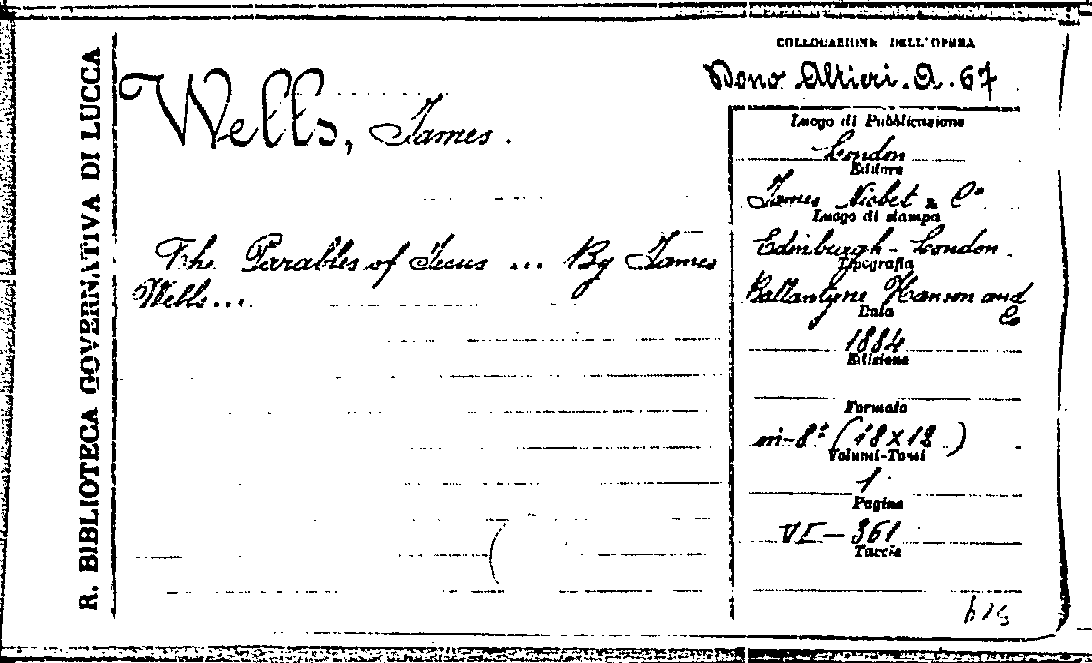 R. BIBLIOTECA GOVERNATIVA DI LUCCA
COLLOCAZIONE DELL'OPERA
Dono Altieri. A. 67
Wells, James.
The Parables of Jesus ... By James
Wells...
Luogo di Pubblicazione
London
Editore
James Nisbet & Cº
Luogo di stampa
Edinburgh - London.
Tipografia
Ballantyne Hanson and
Co
Data
1884
Edizione
Formato
in-8º (18x12)
Volumi-Tomi
1
Pagine
VI-361